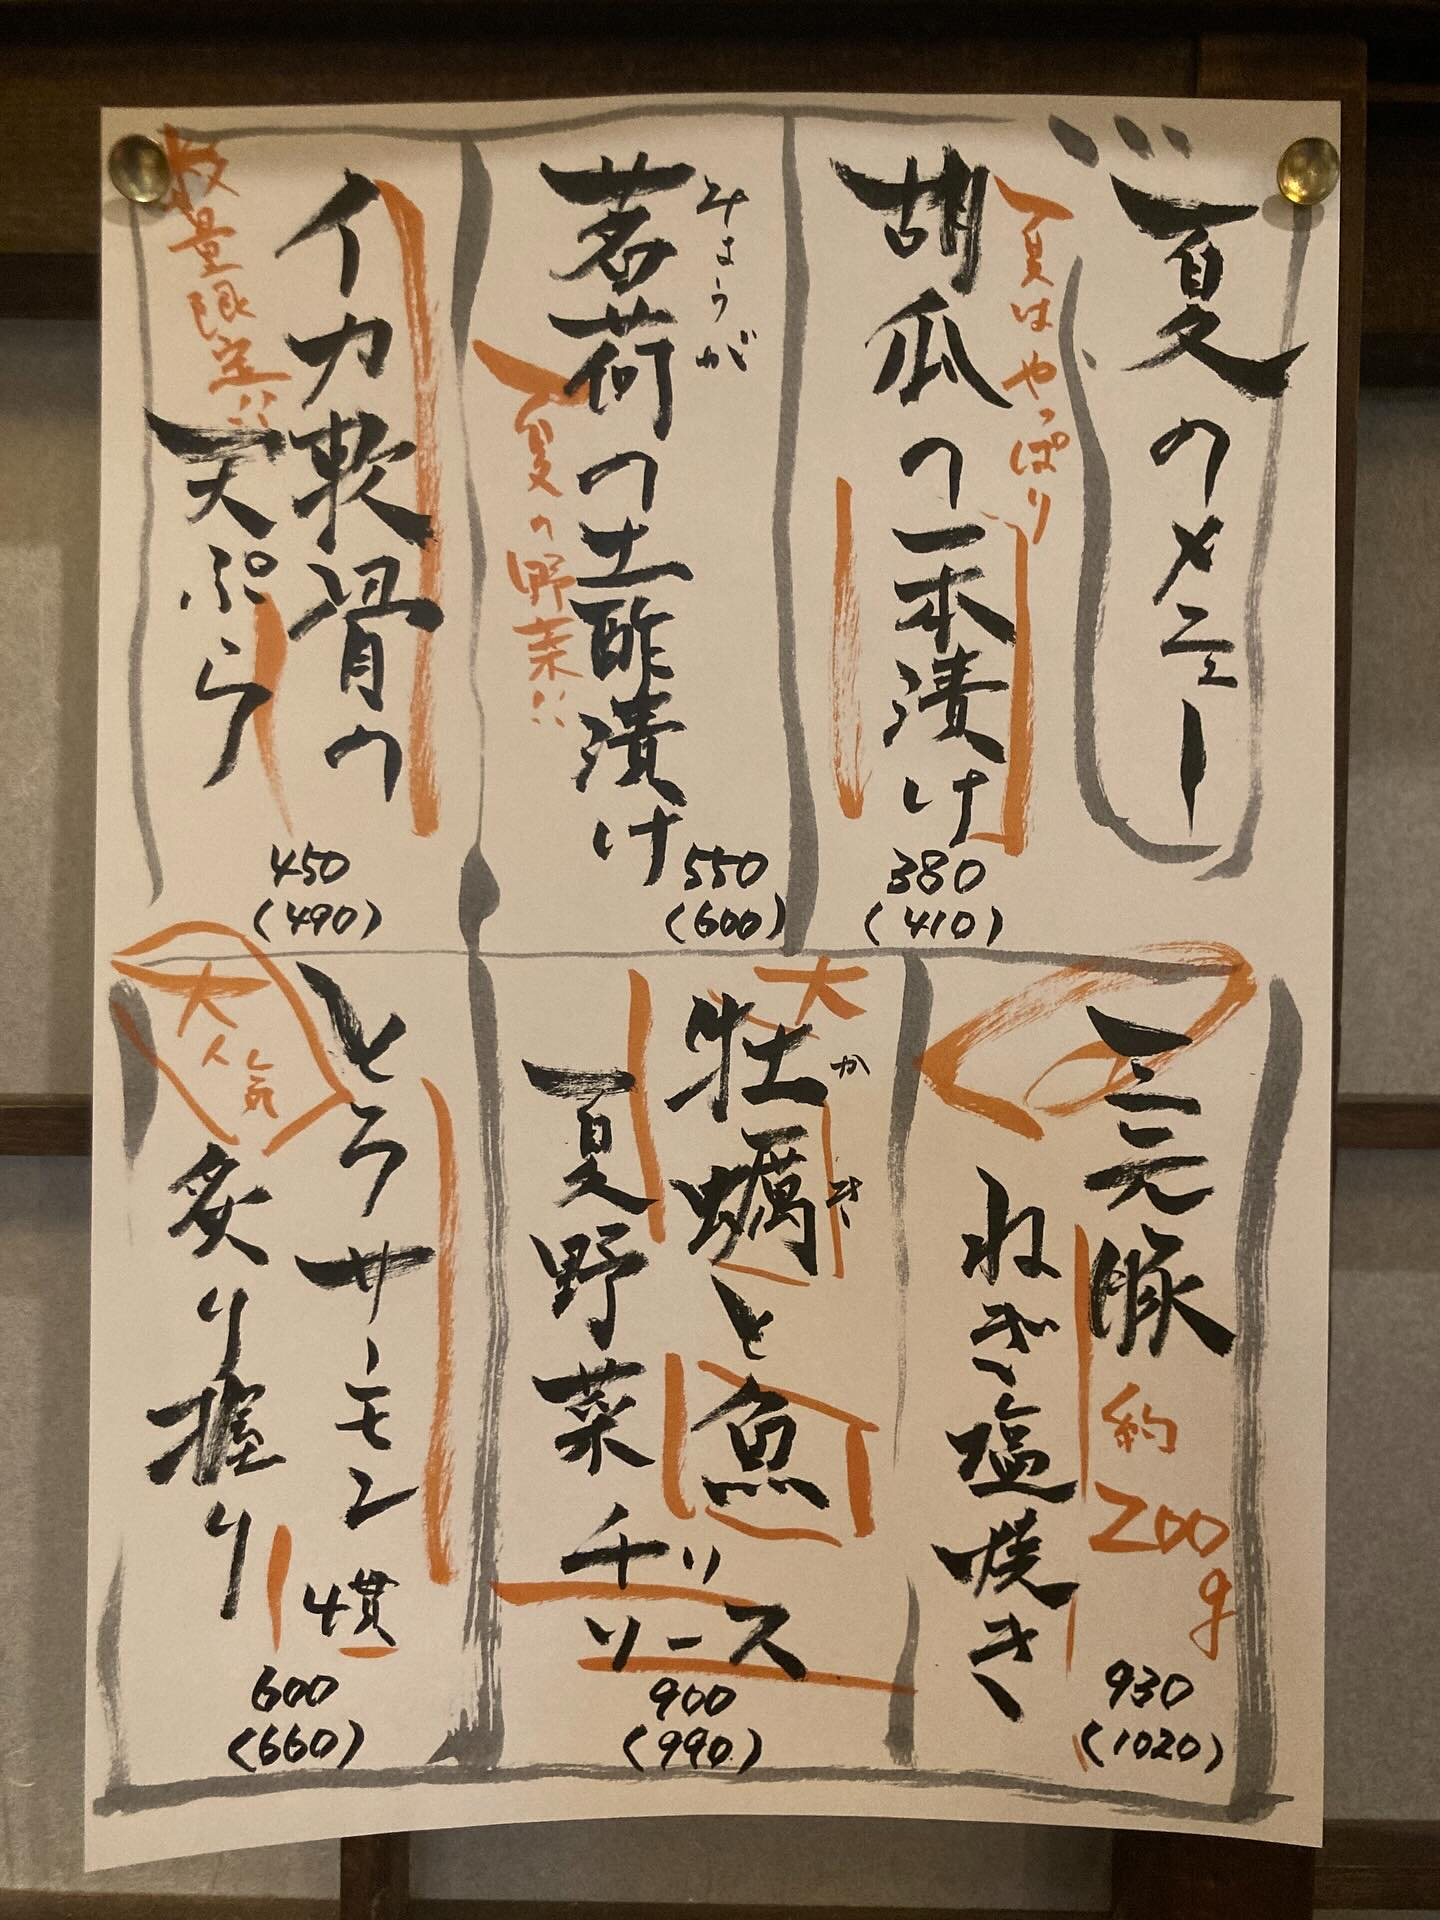 夏のメニュー
夏はやっぱり
胡瓜の一本漬け
380
(410)
みょうが
茗荷の土酢漬け
夏の野菜!!
550
(600)
イカ軟骨の
天ぷら
数量限定!!
450
(490)
三元豚
約
200
g
ねぎ塩焼き
930
(1020)
大
かき
牡蠣と魚
夏野菜チリ
ソース
900
(990)
とろサーモン
4貫
大人気
炙り握り
600
(660)